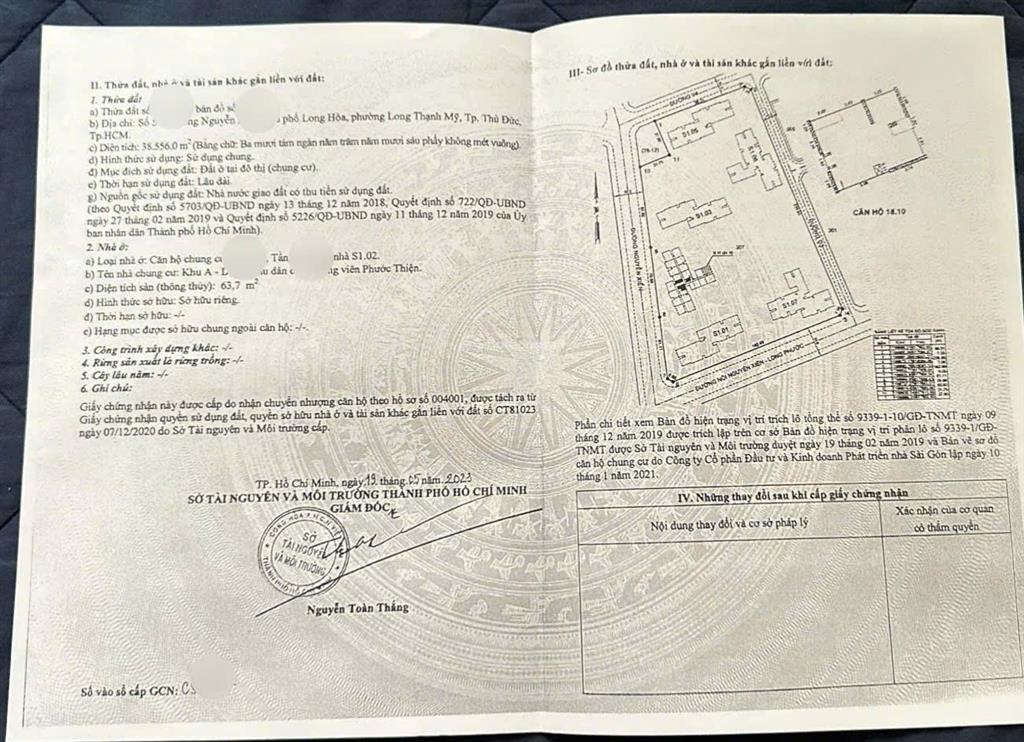 II. Thửa đất, nhà ở và tài sản khác gắn liền với đất:
1. Thửa đất
a) Thửa đất số bản đồ số
b) Địa chỉ: Số Nguyễn phố Long Hòa, phường Long Thạnh Mỹ, Tp. Thủ Đức,
Tp.HCM.
c) Diện tích: 38.556,0 m² (Bằng chữ: Ba mươi tám ngàn năm trăm năm mươi sáu phẩy không mét vuông).
d) Hình thức sử dụng: Sử dụng chung.
đ) Mục đích sử dụng đất: Đất ở tại đô thị (chung cư).
e) Thời hạn sử dụng đất: Lâu dài.
g) Nguồn gốc sử dụng đất: Nhà nước giao đất có thu tiền sử dụng đất.
(theo Quyết định số 5703/QĐ-UBND ngày 13 tháng 12 năm 2018, Quyết định số 722/QĐ-UBND
ngày 27 tháng 02 năm 2019 và Quyết định số 5226/QĐ-UBND ngày 11 tháng 12 năm 2019 của Ủy
ban nhân dân Thành phố Hồ Chí Minh).
2. Nhà ở:
a) Loại nhà ở: Căn hộ chung nhà S1.02.
b) Tên nhà chung cư: Khu A - dân viên Phước Thiện.
c) Diện tích sàn (thông thủy): 63,7 m²
d) Hình thức sở hữu: Sở hữu riêng.
đ) Thời hạn sở hữu: -/-
e) Hạng mục được sở hữu chung ngoài căn hộ: -/-.
3. Công trình xây dựng khác: -/-
4. Rừng sản xuất là rừng trồng: -/-
5. Cây lâu năm: -/-
6. Ghi chú:
Giấy chứng nhận này được cấp do nhận chuyển nhượng căn hộ theo hồ sơ số 004001, được tách ra từ
Giấy chứng nhận quyền sử dụng đất, quyền sở hữu nhà ở và tài sản khác gắn liền với đất số CT81023
ngày 07/12/2020 do Sở Tài nguyên và Môi trường cấp.
TP. Hồ Chí Minh, ngày 19 tháng 05 năm 2023
SỞ TÀI NGUYÊN VÀ MÔI TRƯỜNG THÀNH PHỐ HỒ CHÍ MINH
GIÁM ĐỐC
SỞ
TÀI NGUYÊN
VÀ MÔI TRƯỜNG
Nguyễn Toàn Thắng
Số vào sổ cấp GCN:
III- Sơ đồ thửa đất, nhà ở và tài sản khác gắn liền với đất:
S1.05
S1.06
S1.03
S1.07
S1.01
ĐƯỜNG NGUYỄN XIỂN
ĐƯỜNG NỐI NGUYỄN XIỂN - LONG PHƯỚC
CĂN HỘ 18.10
Phần chi tiết xem Bản đồ hiện trạng vị trí trích lô tổng thể số 9339-1-10/GĐ-TNMT ngày 09
tháng 12 năm 2019 được trích lập trên cơ sở Bản đồ hiện trạng vị trí phân lô số 9339-1/GĐ-
TNMT được Sở Tài nguyên và Môi trường duyệt ngày 19 tháng 02 năm 2019 và Bản vẽ sơ đồ
căn hộ chung cư do Công ty Cổ phần Đầu tư và Kinh doanh Phát triển nhà Sài Gòn lập ngày 10
tháng 1 năm 2021.
IV. Những thay đổi sau khi cấp giấy chứng nhận
Nội dung thay đổi và cơ sở pháp lý
Xác nhận của cơ quan
có thẩm quyền